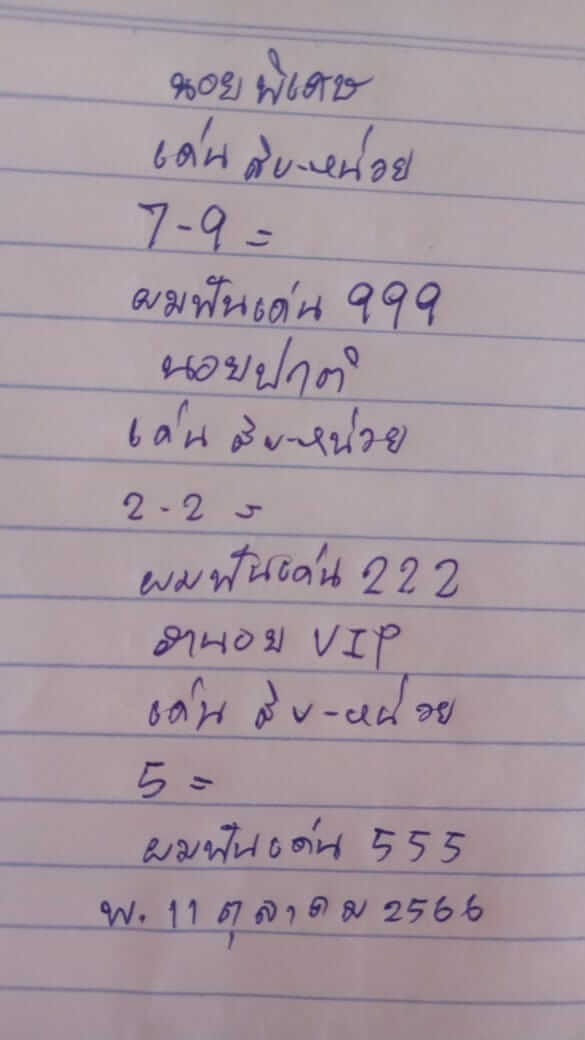 นอยพิเศษ
เด่น สิบ-หน่วย
7-9 =
ผมฟันเด่น 999
นอยปกติ
เด่น สิบ-หน่วย
2-2 =
ผมฟันเด่น 222
ฮานอย VIP
เด่น สิบ-หน่วย
5 =
ผมฟันเด่น 555
พ. 11 ตุลาคม 2566